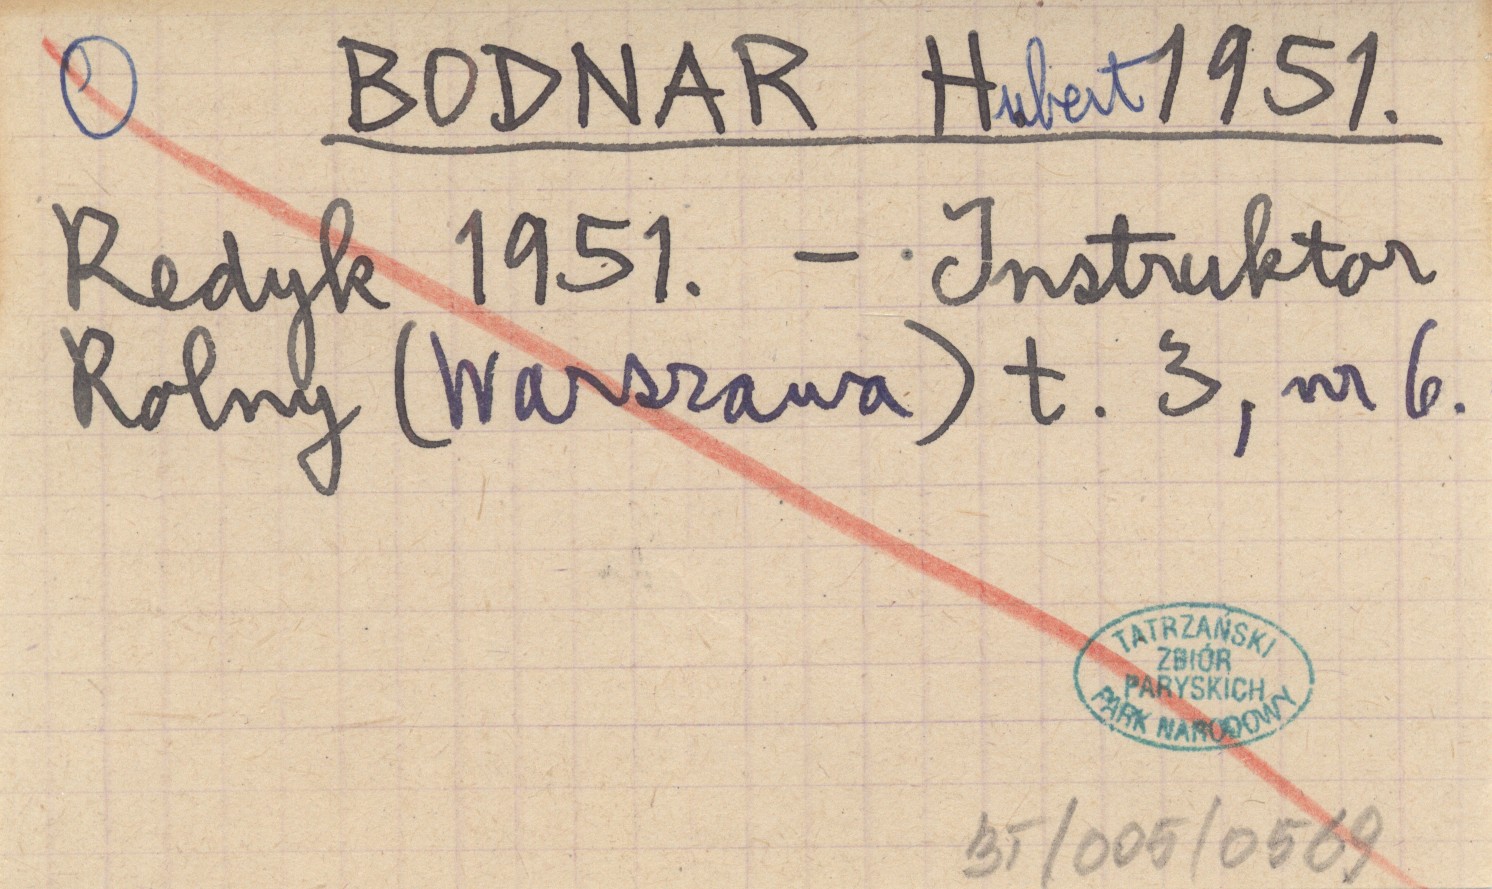 BODNAR Hubert 1951.
Redyk 1951. - Instruktor
Rolny (Warszawa) t. 3, nr 6.
TATRZAŃSKI
ZBIÓR
PARYSKICH
PARK NARODOWY
BT/005/0569